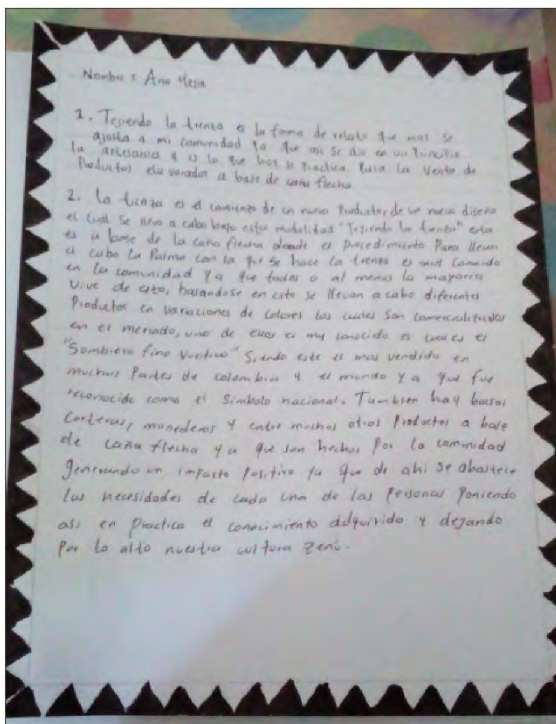 Nombre: Ana Mejia
1. Tejiendo la trenza es la forma de relato que mas se
ajusta a mi comunidad ya que asi se dio en un Principio
la artesania y es la que hoy se Practica Para la Venta de
Productos elavorados a base de caña flecha
2. La trenza es el comienzo de un nuevo Producto, de un nuevo diseño
el Cual Se llevo a cabo bajo esta modalidad "Tejiendo la trenza" esta
es a base de la caña flecha donde el Procedimiento Para llevar
a cabo La Palma con la que se hace la trenza es muy Comando
en la comunidad Ya que todos o al menos la mayoria
vive de esto, basandose en esto se llevan a cabo diferentes
Productos en variaciones de colores los cuales Son comercialitados
en el mercado, uno de ellos es muy conocido el cual es el
"Sombrero fino Vueltiao" Siendo este el mas vendido en
muchas Partes de colombia y el mundo Ya que fue
reconocido como el Simbolo nacional. Tambien hay bolsos
Carteras, monederos y entre muchos otros Productos a base
de caña flecha ya que son hechos Por la comunidad
generando un impacto Positivo ya que de ahi se abastece
las necesidades de cada una de las Personas Poniendo
asi en Practica el conocimiento adquirido y dejando
Por lo alto nuestra cultura Zenú.